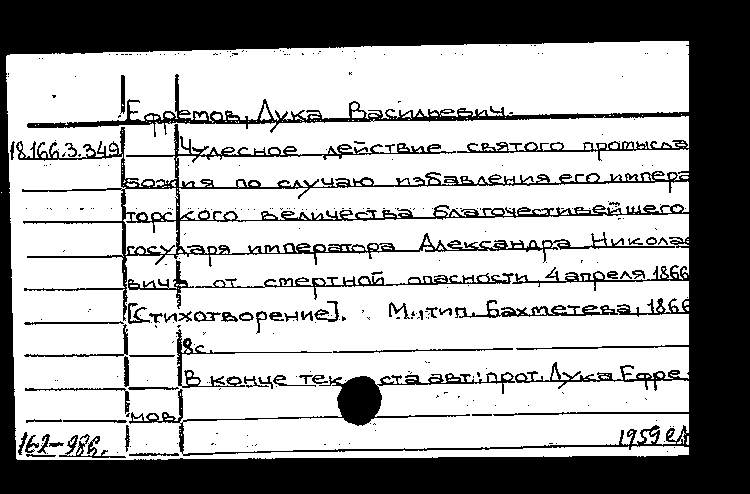 Ефремов, Лука Васильевич.
18.166.3.349 Чудесное действие святого промысла
божия по случаю избавления его импера
торского величества благочестивейшего
государя императора Александра Николае
вича от смертной опасности, 4 апреля 1866
[Стихотворение]. М., тип. Бахметева, 1866
8с.
В конце тек ста авт.: прот. Лука Ефре
мов.
162-986. 1959